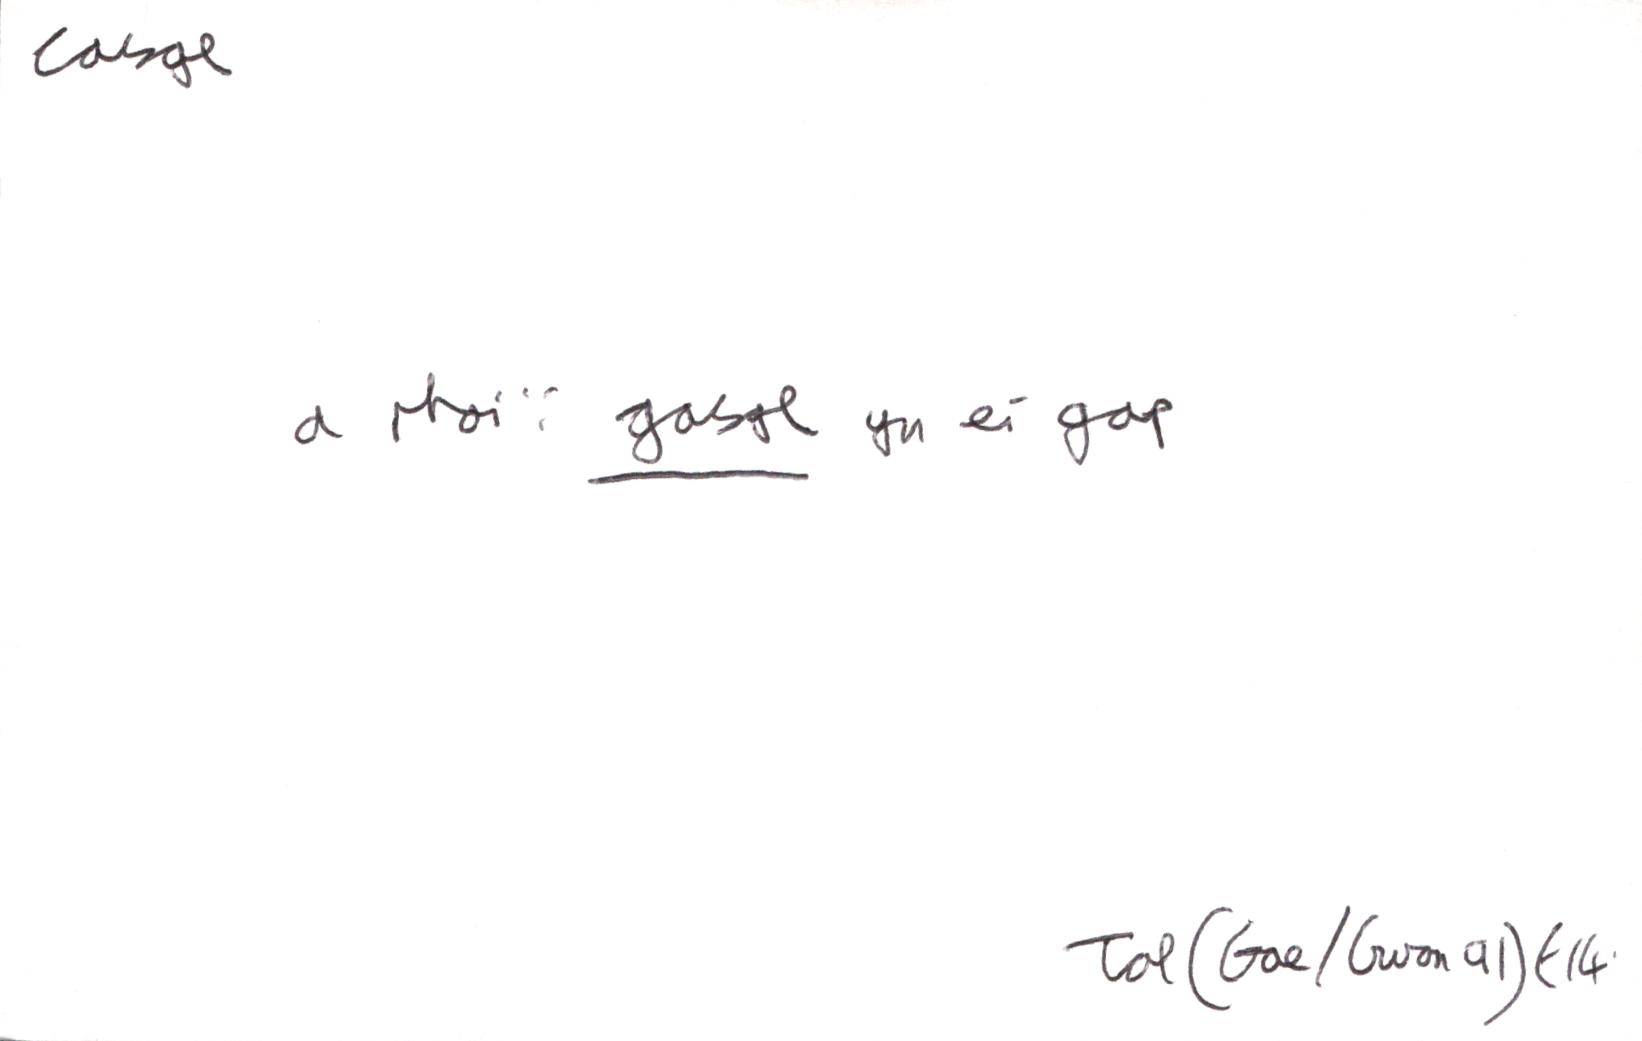 Casgl
a rhoi'i gasgl yn ei gap
Tal (Gae/Gwan 91) E14.